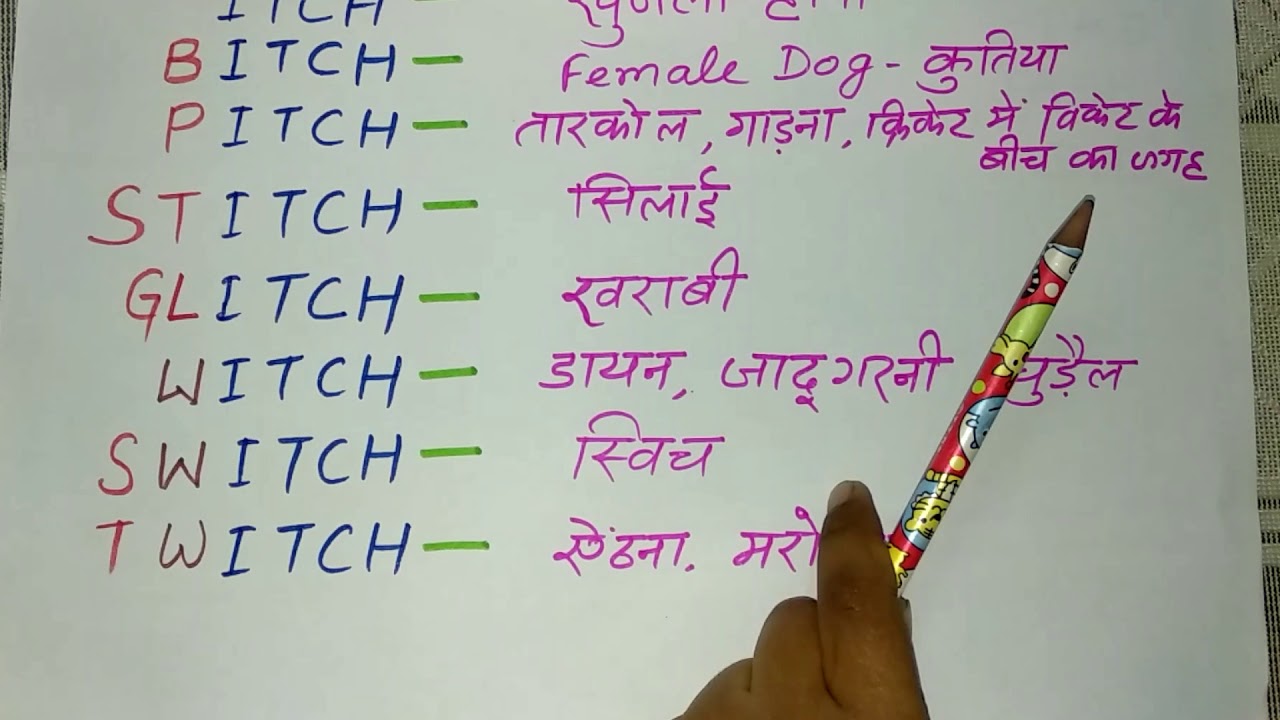 ITCH - खुजली होना
BITCH - Female Dog - कुतिया
PITCH - तारकोल, गाड़ना, क्रिकेट में विकेट के
बीच का जगह
STITCH - सिलाई
GLITCH - खराबी
WITCH - डायन, जादूगरनी
SWITCH - स्विच
TWITCH - ऐंठना.